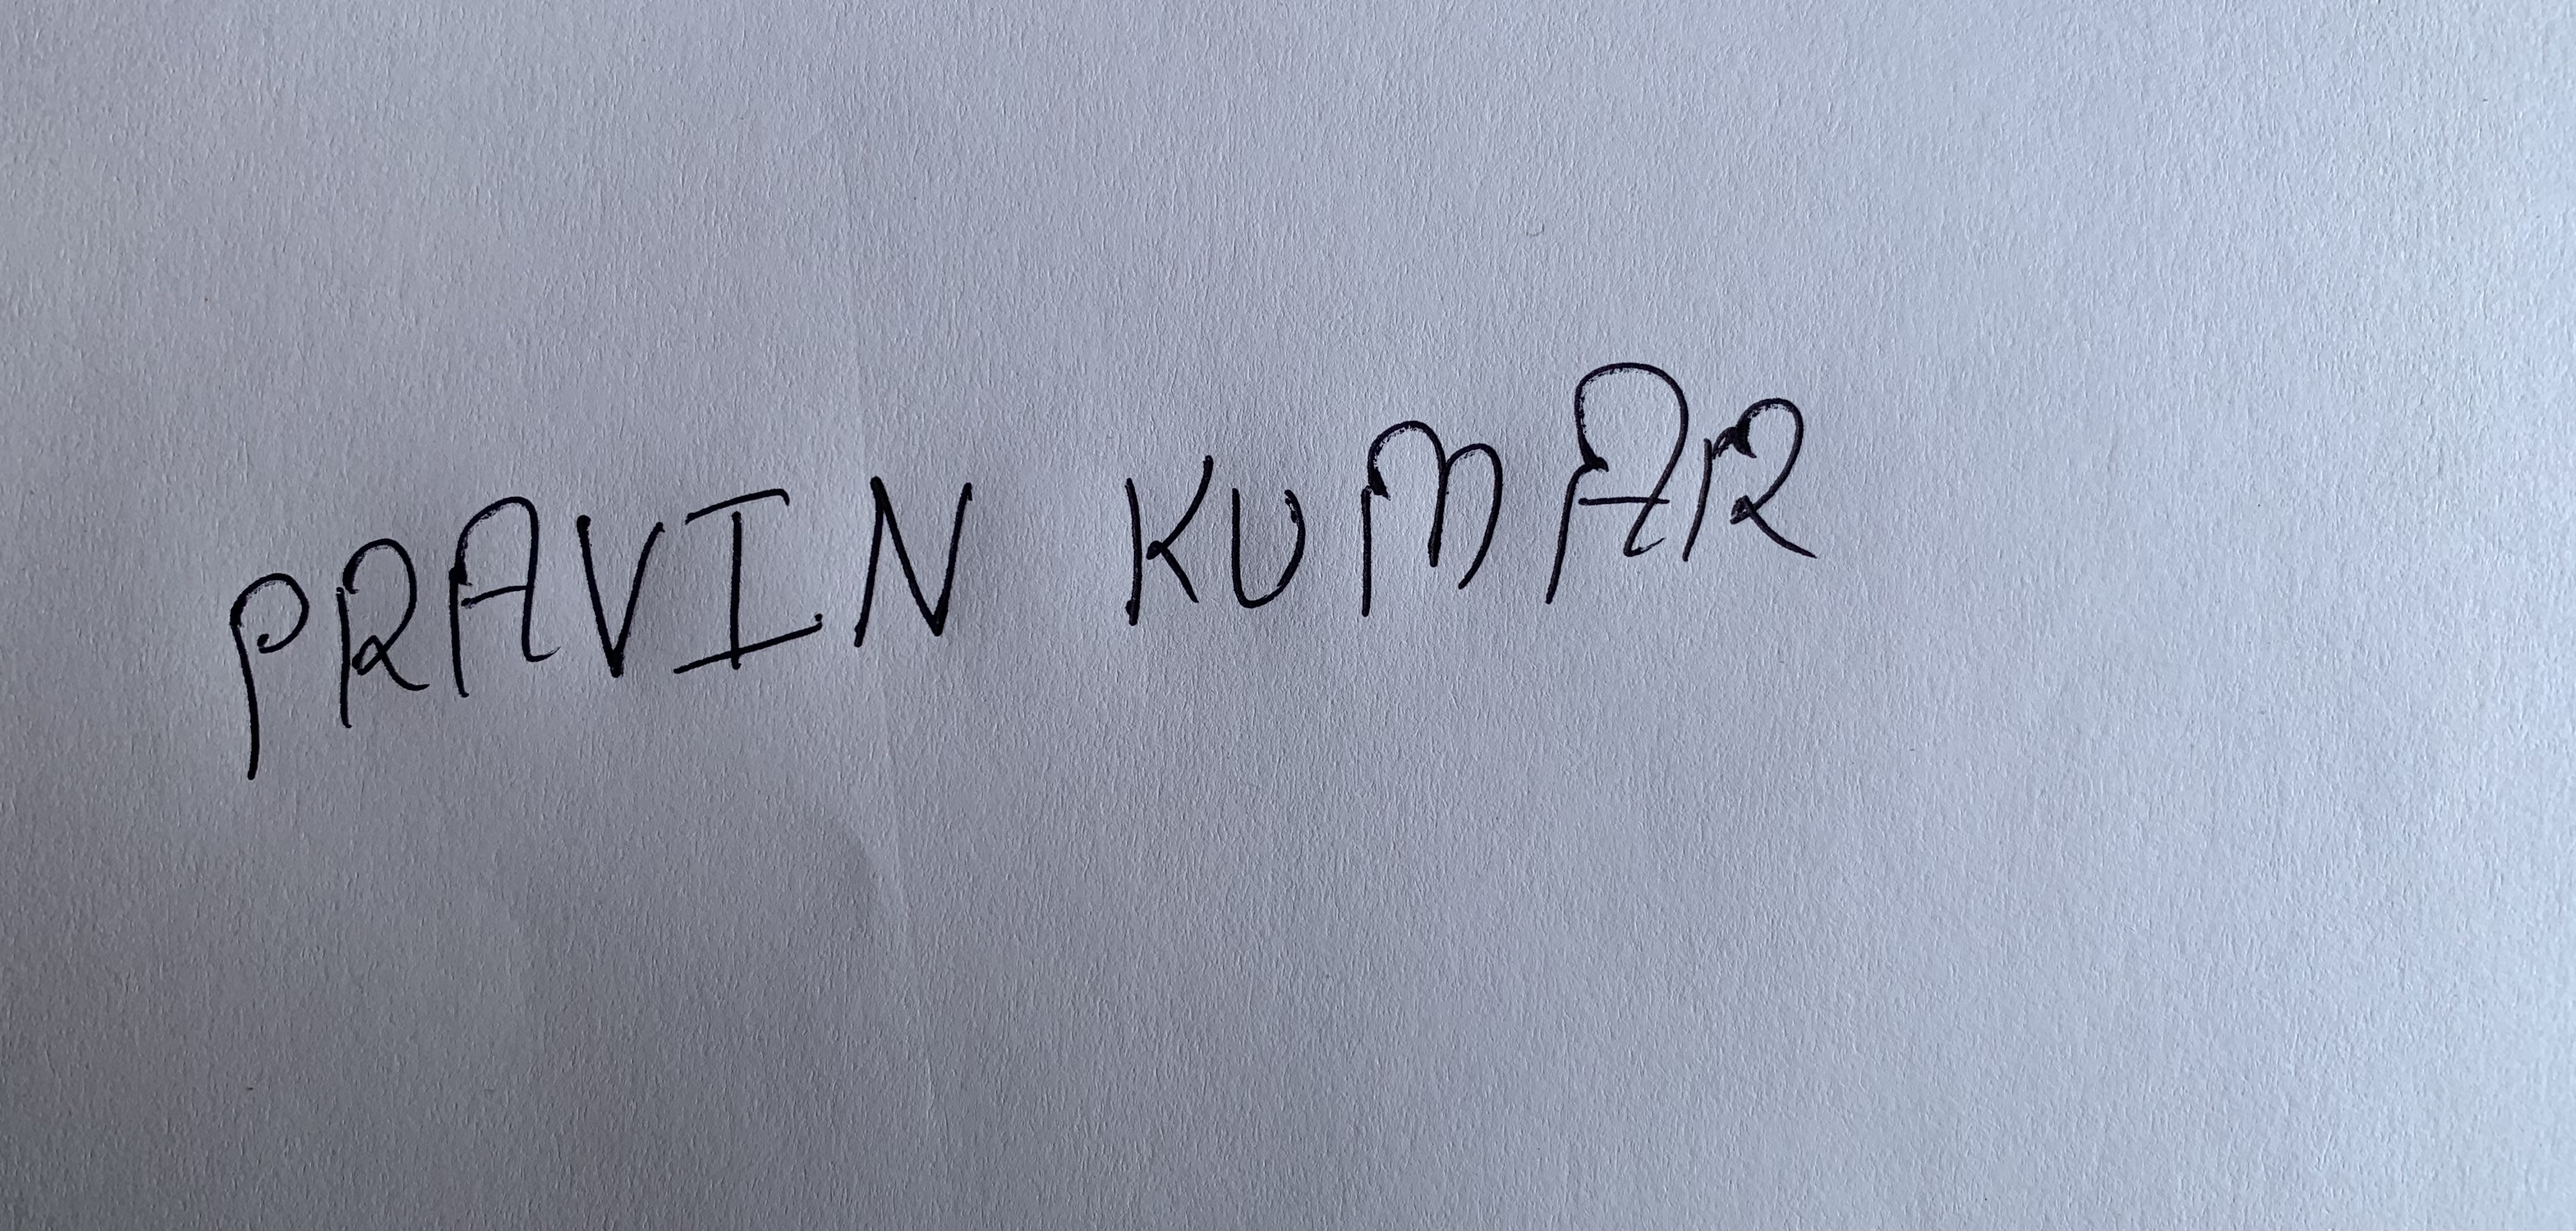 PRAVIN KUMAR